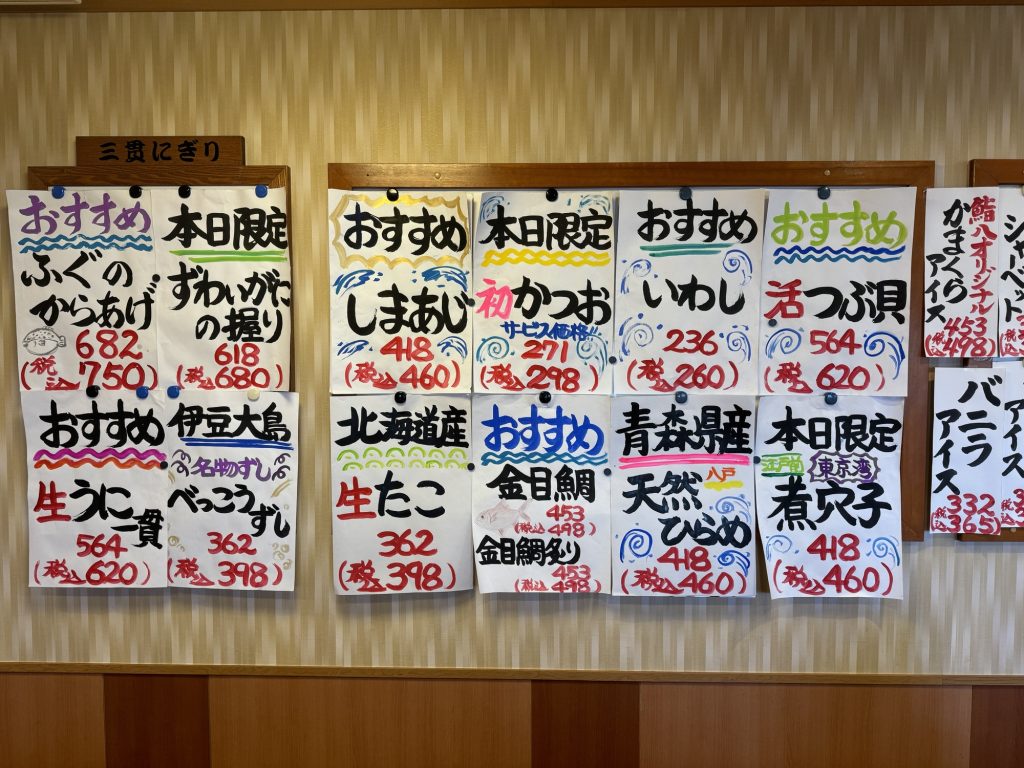 三貫にぎり
おすすめ
ふぐの
からあげ
682
(税込750)
本日限定
ずわいがに
の握り
618
(税込680)
おすすめ
生うに
一貫
564
(税込620)
伊豆大島
名物ずし
べっこう
ずし
362
(税込398)
おすすめ
しまあじ
418
(税込460)
本日限定
初かつお
サービス価格!!
271
(税込298)
おすすめ
いわし
236
(税込260)
おすすめ
活つぶ貝
564
(税込620)
北海道産
生たこ
362
(税込398)
おすすめ
金目鯛
453
(税込498)
金目鯛炙り
453
(税込498)
青森県産
八戸
天然
ひらめ
418
(税込460)
本日限定
江戸前
東京湾
煮穴子
418
(税込460)
鮨八オリジナル
かまくら
アイス
453
(税込498)
シャーベット
バニラ
アイス
332
(税込365)
アイス